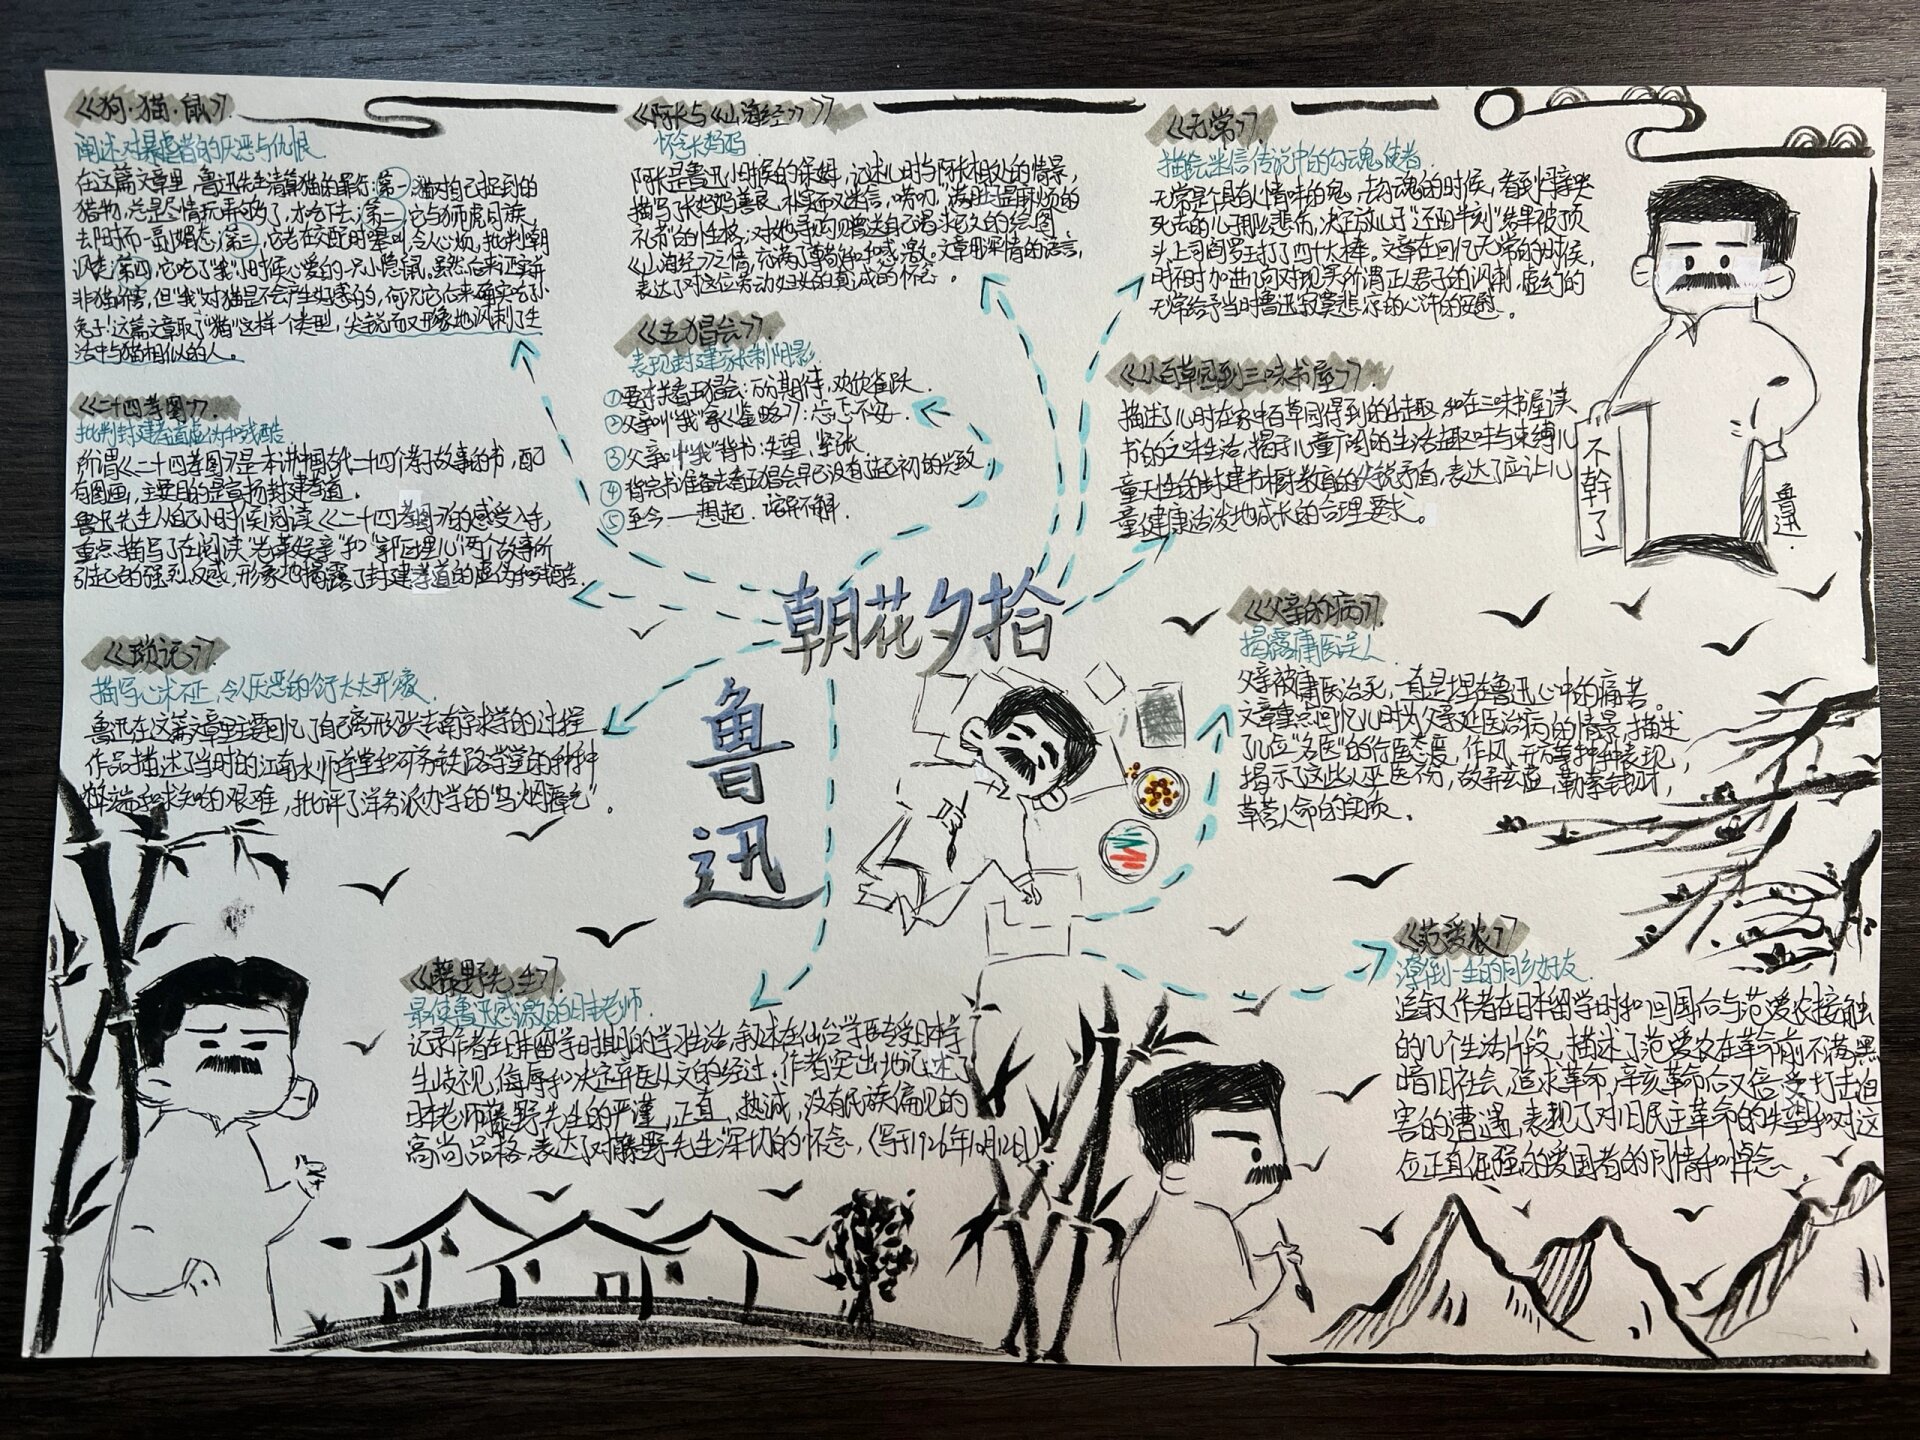 《狗·猫·鼠》
阐述对暴虐者的厌恶与仇恨
在这篇文章里，鲁迅先生清算猫的罪行：第一，猫对自己捉到的
猎物，总是尽情玩弄够了，才吃下去；第二，它与狮虎同族，
去却时而一副媚态；第三，它老在交配时嗥叫，令人心烦，批判嘲
讽类；第四，它吃了"我"小时候心爱的一只小隐鼠。虽然后来证实并
非猫所害，但"我"对猫是不会产生好感的，何况它后来确实吃了小
兔子！这篇文章取了"猫"这样一个类型，尖锐而又形象地讽刺了生
活中与猫相似的人。
《二十四孝图》
批判封建孝道虚伪和残酷
所谓《二十四孝图》是一本讲中国古代二十四个孝子故事的书，配
有图画，主要目的是宣扬封建孝道。
鲁迅先生从自己小时候阅读《二十四孝图》的感受入手，
重点描写了在阅读"老莱娱亲"和"郭巨埋儿"两个故事所
引起的强烈反感，形象地揭露了封建孝道的虚伪和残酷。
《琐记》
描写心术不正，令人厌恶的衍太太开凌
鲁迅在这篇文章里主要回忆了自己离开绍兴去南京求学的过程
作品描述了当时的江南水师学堂和矿务铁路学堂的种种
弊端和求知的艰难，批评了洋务派办学的"乌烟瘴气"。
《阿长与《山海经》》
怀念长妈妈
阿长是鲁迅小时候的保姆，记述儿时与阿长相处的情景，
描写了长妈妈善良、朴实而又迷信、唠叨、满肚子是麻烦的
礼节"的性格，对她寻购赠送自己渴求已久的绘图
《山海经》之情，充满了尊敬和感激。文章用深情的语言，
表达了对这位劳动妇女的真诚的怀念。
《五猖会》
表现封建家长制阴影
①要去看五猖会：万分期待，欢欣雀跃.
②父亲叫"我"拿《鉴略》：忐忑不安.
③父亲叫"我"背书：失望、紧张
④背完书准备去看五猖会早已没有说起初的兴致
⑤至今一想起：诧异不解.
《无常》
描绘迷信传说中的勾魂使者.
无常是个具有人情味的鬼，去勾魂的时候，看到母亲哭
死去的儿子那么悲伤，决定放儿子"还阳半刻"结果被顶
头上司阎罗王打了四十大棒。文章在回忆无常的时候，
时不时加进几句对现实所谓正人君子的讽刺，虚幻的
无常给予当时鲁迅寂寞悲凉的心许的安慰。
《从百草园到三味书屋》
描述了儿时在家中百草园得到的乐趣和在三味书屋读
书的乏味生活，揭示儿童广阔的生活趣味与束缚儿
童天性的封建书塾教育的尖锐矛盾，表达了应让儿
童健康活泼地成长的合理要求。
不幹了
鲁迅.
朝花夕拾
鲁迅
《父亲的病》
揭露庸医误人
父亲被庸医治死，一直是埋在鲁迅心中的痛苦。
文章重点回忆儿时为父亲延医治病的情景，描述
了几位"名医"的行医态度、作风、开方等种种表现，
揭示了这些人巫医不分，故弄玄虚，勒索钱财，
草菅人命的实质。
《藤野先生》
最使鲁迅感激的日本老师
记录作者在日本留学时期的学习生活，叙述在仙台学医专受日本学
生歧视、侮辱和决定弃医从文的经过。作者突出地记述了
日本老师藤野先生的严谨，正直，热诚，没有民族偏见的
高尚品格，表达了对藤野先生深切的怀念。（写于1926年10月12日）
《范爱农》
潦倒一生的同乡好友
追叙作者在日本留学时和回国后与范爱农接触
的几个生活片段，描述了范爱农在革命前不满黑
暗旧社会，追求革命，辛亥革命后又备受打击迫
害的遭遇，表现了对旧民主革命的失望和对这
位正直倔强的爱国者的同情和悼念